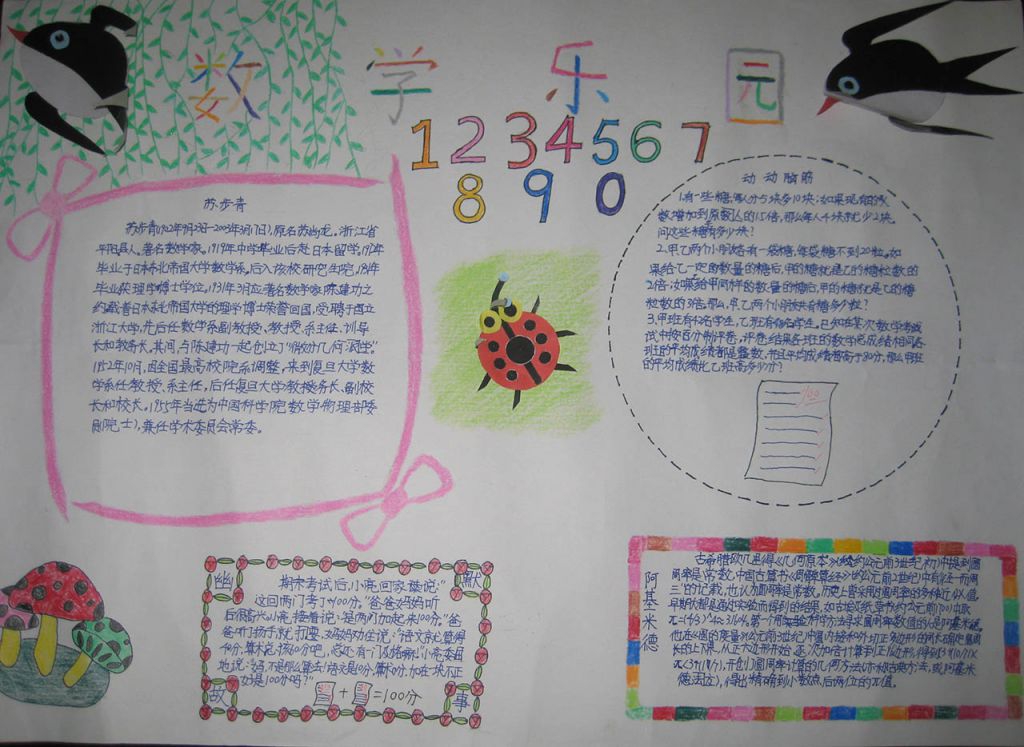 数 学 乐 园
1234567
890
苏步青
苏步青(1902年9月23日-2003年3月17日),原名苏尚龙。浙江省
平阳县人。著名数学家。1919年中学毕业后赴日本留学。
毕业于日本东北帝国大学数学系。后入该校研究生院,
毕业获理学博士学位。1931年3月应著名数学家陈建功之
约,载着日本东北帝国大学的理学博士荣誉回国,受聘于国立
浙江大学,先后任数学系副教授、教授、系主任、训导
长和教务长。其间,与陈建功一起创立了"微分几何学派"。
1952年10月,因全国最高校院系调整,来到复旦大学数
学系任教授、系主任,后任复旦大学教务长、副校
长和校长。1955年当选为中国科学院数学物理部委
员(院士),兼任学术委员会常委。
动动脑筋
1.有一些糖,每人分5块多10块;如果现有的人
数增加到原数的1.5倍,那么每人4块就少2块。
问这些糖有多少块?
2.甲乙两个小朋各有一袋糖,每袋糖不到20粒。如
果给乙一定的数量的糖后,甲的糖就是乙的糖粒数的
2倍,如果给甲同样的数量的糖后,甲的糖就是乙的糖
粒数的3倍。那么,甲、乙两个小朋共有糖多少粒?
3.甲班有42名学生,乙班有48名学生。已知在某次数学考试
试中按百分制评卷,评卷结果各班的数学总成绩相同,各
班的平均成绩都是整数,并且平均成绩都高于80分。那么甲班
的平均成绩比乙班高多少分?
100
幽 默 故 事
期末考试后,小亮回家就说:"
这回两门考了100分。"爸爸妈妈听
后很高兴。小亮接着说:"是两门加起来100分。"爸
爸听扬手就打耍,妈妈劝住说:"语文就算得
小亮委屈
100分吗?"
+ =100分
阿基米德
古希腊欧几里得《几何原本》(约公元前3世纪初)中提到圆
周率是常数,中国古算书《周髀算经》(约公元前2世纪)中有"径一而周
三"的记载,也认为圆周率是常数。历史上曾采用过圆周率的多种近似值,
早期大都是通过实验而得到的结果,如古埃及纸草书(约公元前1700)中取
第一个用科学方法寻求圆周率数值的人是阿基米德,
他在《圆的度量》(公元前3世纪)中用圆内接和外切正多边形的周长确定圆周
长的上下界,从正六边形开始,逐次加倍计算到正96边形,得到
开创了圆周率计算的几何方法(亦称古典方法,或阿基米
德方法),得出精确到小数点后两位的π值。